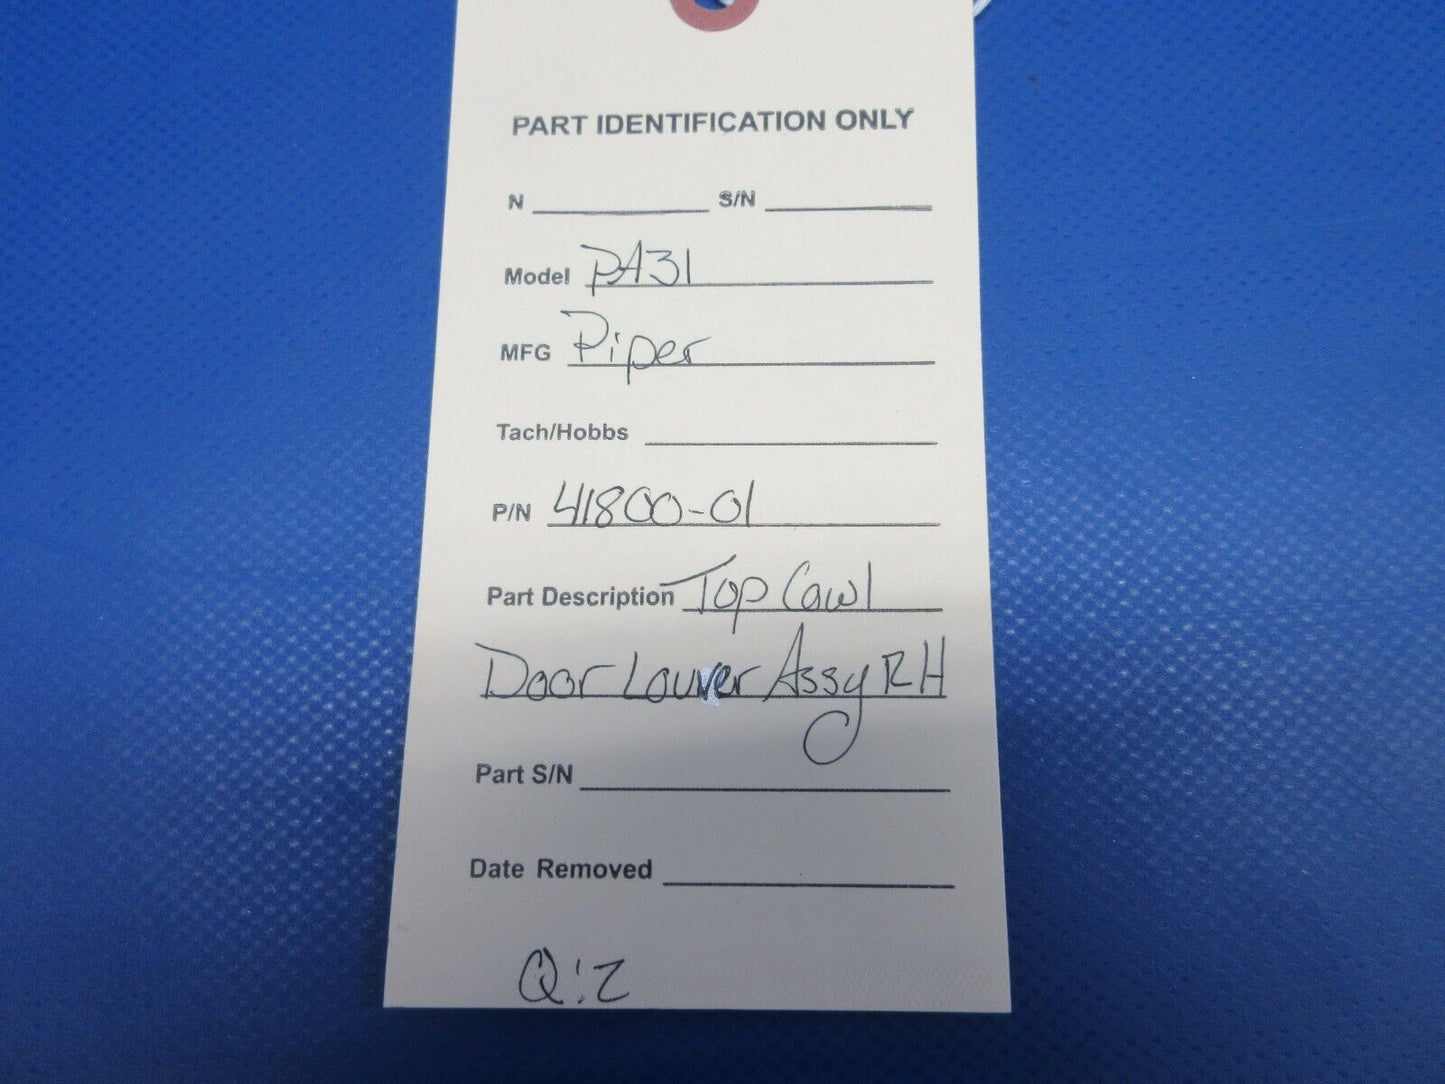 PART IDENTIFICATION ONLY
N S/N
Model PA31
MFG Piper
Tach/Hobbs
P/N 41800-01
Part Description Top Cowl
Door Louver Assy RH
Part S/N
Date Removed
Q:2